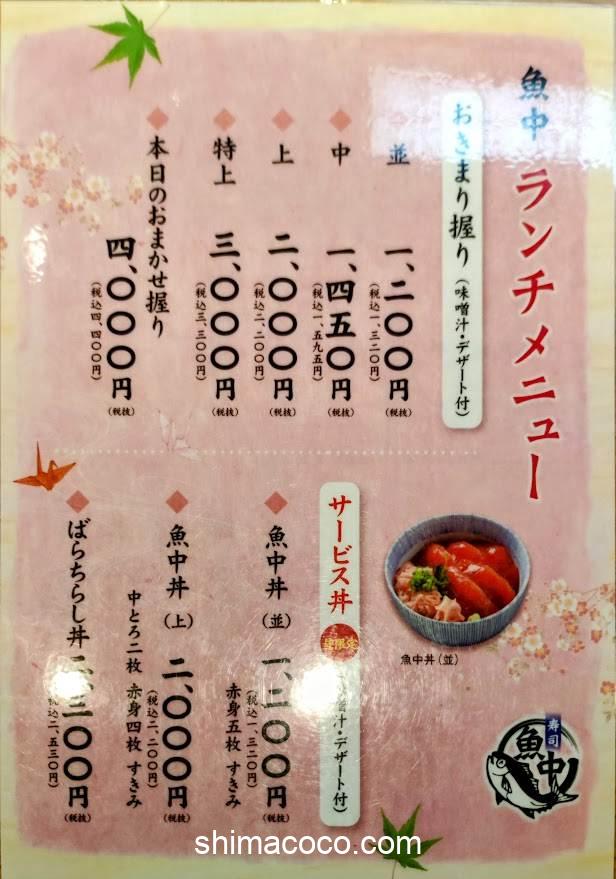 魚中 ランチメニュー
おきまり握り（味噌汁・デザート付）
並 一、二〇〇円（税抜）
（税込一、三二〇円）
中 一、四五〇円（税抜）
（税込一、五九五円）
上 二、〇〇〇円（税抜）
（税込二、二〇〇円）
特上 三、〇〇〇円（税抜）
（税込三、三〇〇円）
本日のおまかせ握り
四、〇〇〇円（税抜）
（税込四、四〇〇円）
魚中丼（並）
寿司 魚中
サービス丼 昼限定 噌汁・デザート付）
魚中丼（並） 一、二〇〇円（税抜）
（税込一、三二〇円）
赤身五枚 すきみ
魚中丼（上） 二、〇〇〇円（税抜）
（税込二、二〇〇円）
中とろ二枚 赤身四枚 すきみ
ばらちらし丼 二、三〇〇円（税抜）
税込二、五三〇円）
shimacoco.com